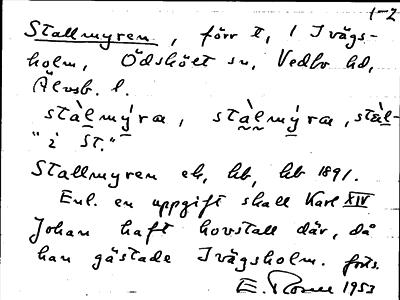 1-2
Stallmyren, förr t, / Ivägs-
holm, Ödskölt sn, Vedbo hd,
Älvsb. l.
stàlmýra, stàlmýra, stàl-
"i St."
Stallmyren ek, hb, hb 1891.
Enl. en uppgift skall Karl XIV
Johan haft hovstall där, då
han gästade Ivägsholm. forts.
E. Rosell 1953